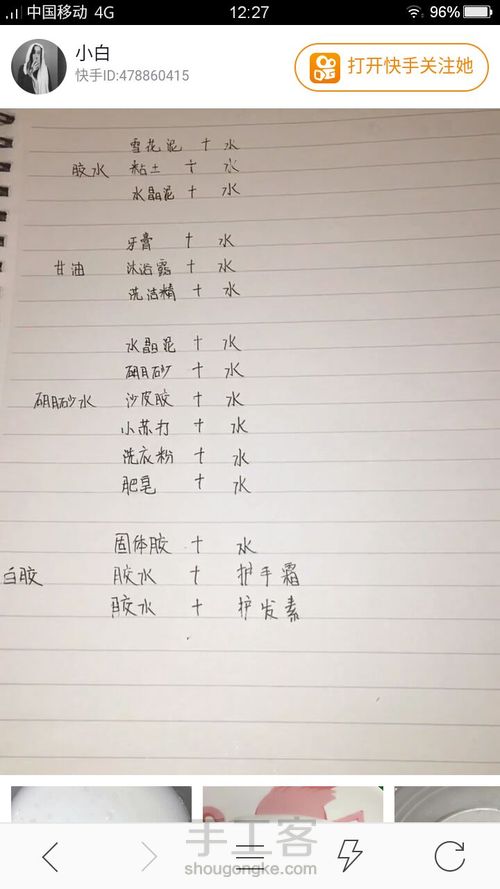 中国移动 4G 12:27 96%
小白
快手ID:478860415
打开快手关注她
雪花泥 + 水
胶水 粘土 + 水
水晶泥 + 水
牙膏 + 水
甘油 沐浴露 + 水
洗洁精 + 水
水晶泥 + 水
硼砂 + 水
硼砂水 沙皮胶 + 水
小苏打 + 水
洗衣粉 + 水
肥皂 + 水
固体胶 + 水
白胶 胶水 + 护手霜
胶水 + 护发素
手工客
shougongke.com